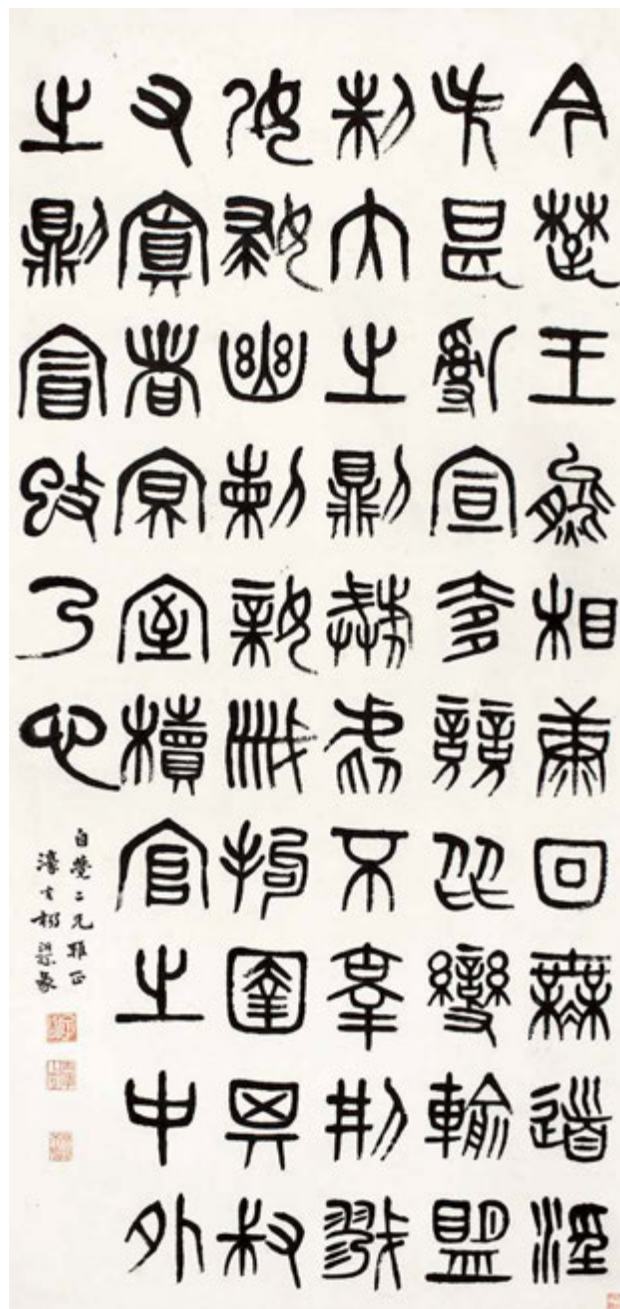 今楚王熊相康回無道淫
失甚亂宣奓競从變輸盟
制内之則虣虐不辜刑戮
孕婦幽刺親戚拘圉其叔
父寘者冥室櫝官之中外
之則冒改久心
自覺二兄雅正